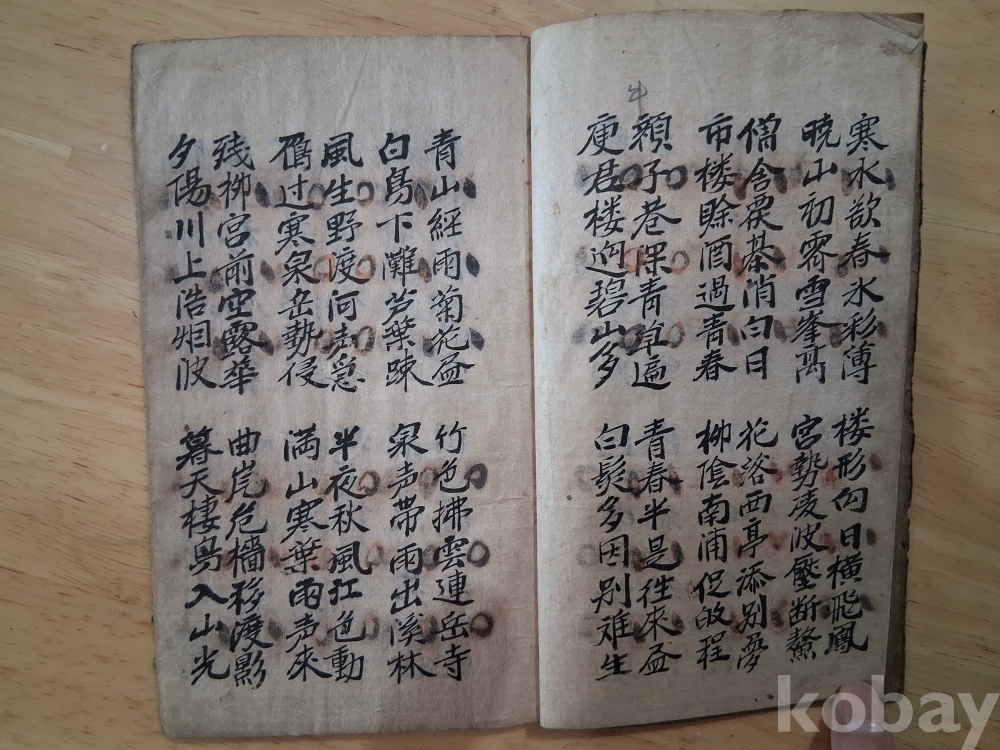 寒水欲春氷彩薄
暁山初霽雪峯高
僧舍覆棊消白日
市楼賒酒過青春
顔子巷深青草遍
庾君楼逈碧山多
楼形向日橫飛鳳
宮勢凌波壓断鰲
花落西亭添别夢
柳陰南浦促皈程
青春半是往來盡
白髮多因别难生
青山經雨菊花盡
白鳥下灘芦葉踈
風生野渡河声急
鴈过寒泉岳勢侵
残柳宮前空露華
夕陽川上浩烟波
竹色拂雲連岳寺
泉声带雨出溪林
半夜秋風江色動
満山寒葉雨声來
曲岸危檣移渡影
暮天棲鳥入山光
kobay